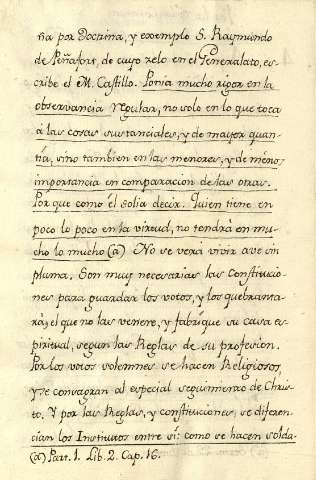 ña por Doctrina, y exemplo S. Raymundo
de Peñafort, de cuyo zelo en el Generalato, es-
cribe el M. Castillo. Ponia mucho rigor en la
observancia regular, no solo en lo que toca
à las cosas sustanciales, y de mayor quan-
tía, sino tambien en las menores, y de menos
importancia en comparacion de las otras.
Por que como èl solia decir. Quien tiene en
poco lo poco en la virtud, no tendrà en mu-
cho lo mucho (a) No se verà vivir ave sin
pluma. Son muy necesarias las Constitucio-
nes para guardar los votos, y los quebranta-
rà, el que no las venere, y fabrique su casa es-
piritual, segun las Reglas de su profesion.
Por los votos solemnes se hacen Religiosos,
y se consagran al especial seguimiento de Chris-
to. Y por las Reglas, y constituciones, se diferen-
cian los Institutos entre sí: como se hacen solda-
(a) Part. 1. Lib. 2. Cap. 16.